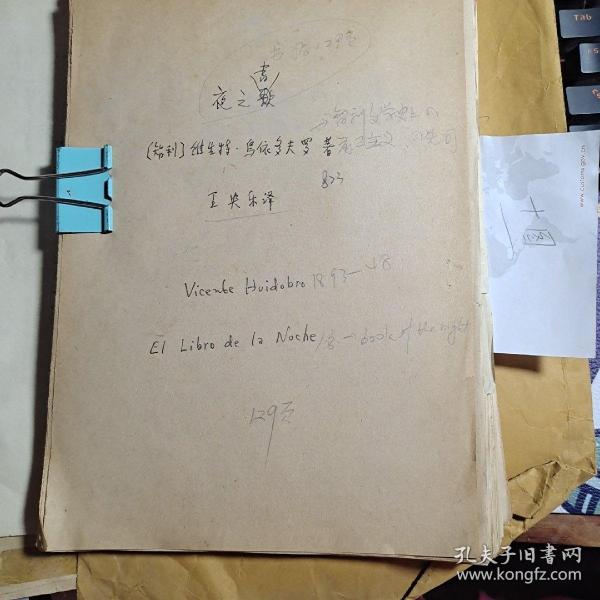 129页
书
夜之歌
[智利] 维生特·乌依多夫罗 著
→智利文学史上的
主义
王央乐译
Vicente Huidobro 1893—48
El Libro de la Noche
book of the night
129页
十
Tab
孔夫子旧书网
www.kongfz.com